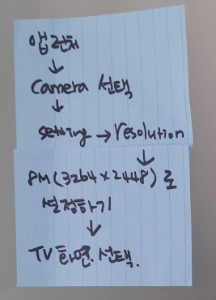 앱 런처
↓
Camera 선택
↓
setting → resolution
↓
8M (3264 x 2448) 로
설정하기
↓
TV 화면 선택.